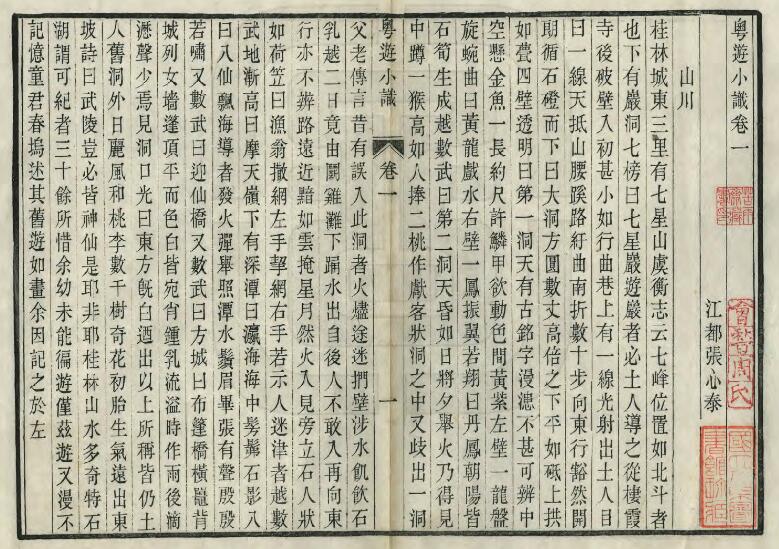 粵遊小識卷一
江都張心泰
山川
桂林城東三里有七星山虞衡志云七峰位置如北斗者
也下有巖洞七榜曰七星巖遊巖者必土人導之從棲霞
寺後破壁入初甚小如行曲巷上有一線光射出土人目
曰一線天抵山腰蹊路紆曲南折數十步向東行豁然開
朗循石磴而下曰大洞方圓數丈高倍之下平如砥上拱
如甍四壁透明曰第一洞天有古銘字漫漶不甚可辨中
空懸金魚一長約尺許鱗甲欲動色間黃紫左壁一龍盤
旋蜿曲曰黃龍戲水右壁一鳳振翼若翔曰丹鳳朝陽皆
石筍生成越數武曰第二洞天昏如日將夕舉火乃得見
中蹲一猴高如人捧二桃作獻客狀洞之中又歧出一洞
粵遊小識
卷一
一
父老傳言昔有誤入此洞者火燼途迷捫壁涉水飢飲石
乳越二日竟由鬬雞灘下踊水出自後人不敢入再向東
行亦不辨路遠近黯如雲掩星月然火入見旁立石人狀
如荷笠曰漁翁撒網左手拏網右手若示人迷津者越數
武地漸高曰摩天嶺下有深潭曰瀛海海中髣髴石影入
曰八仙飄海導者發火彈舉照潭水鬚眉畢張有聲殷殷
若嘯又數武曰迎仙橋又數武曰方城曰布篷橋橫鼉背
城列女墻蓬頂平而色白皆宛肖鍾乳流溢時作雨後滴
瀝聲少焉見洞口光曰東方旣白迺出以上所稱皆仍土
人舊洞外日麗風和桃李數千樹奇花初胎生氣遠出東
坡詩曰武陵豈必皆神仙是耶非耶桂林山水多奇特石
湖謂可紀者三十餘所惜余幼未能徧遊僅茲遊又漫不
記憶童君春塢述其舊遊如畫余因記之於左